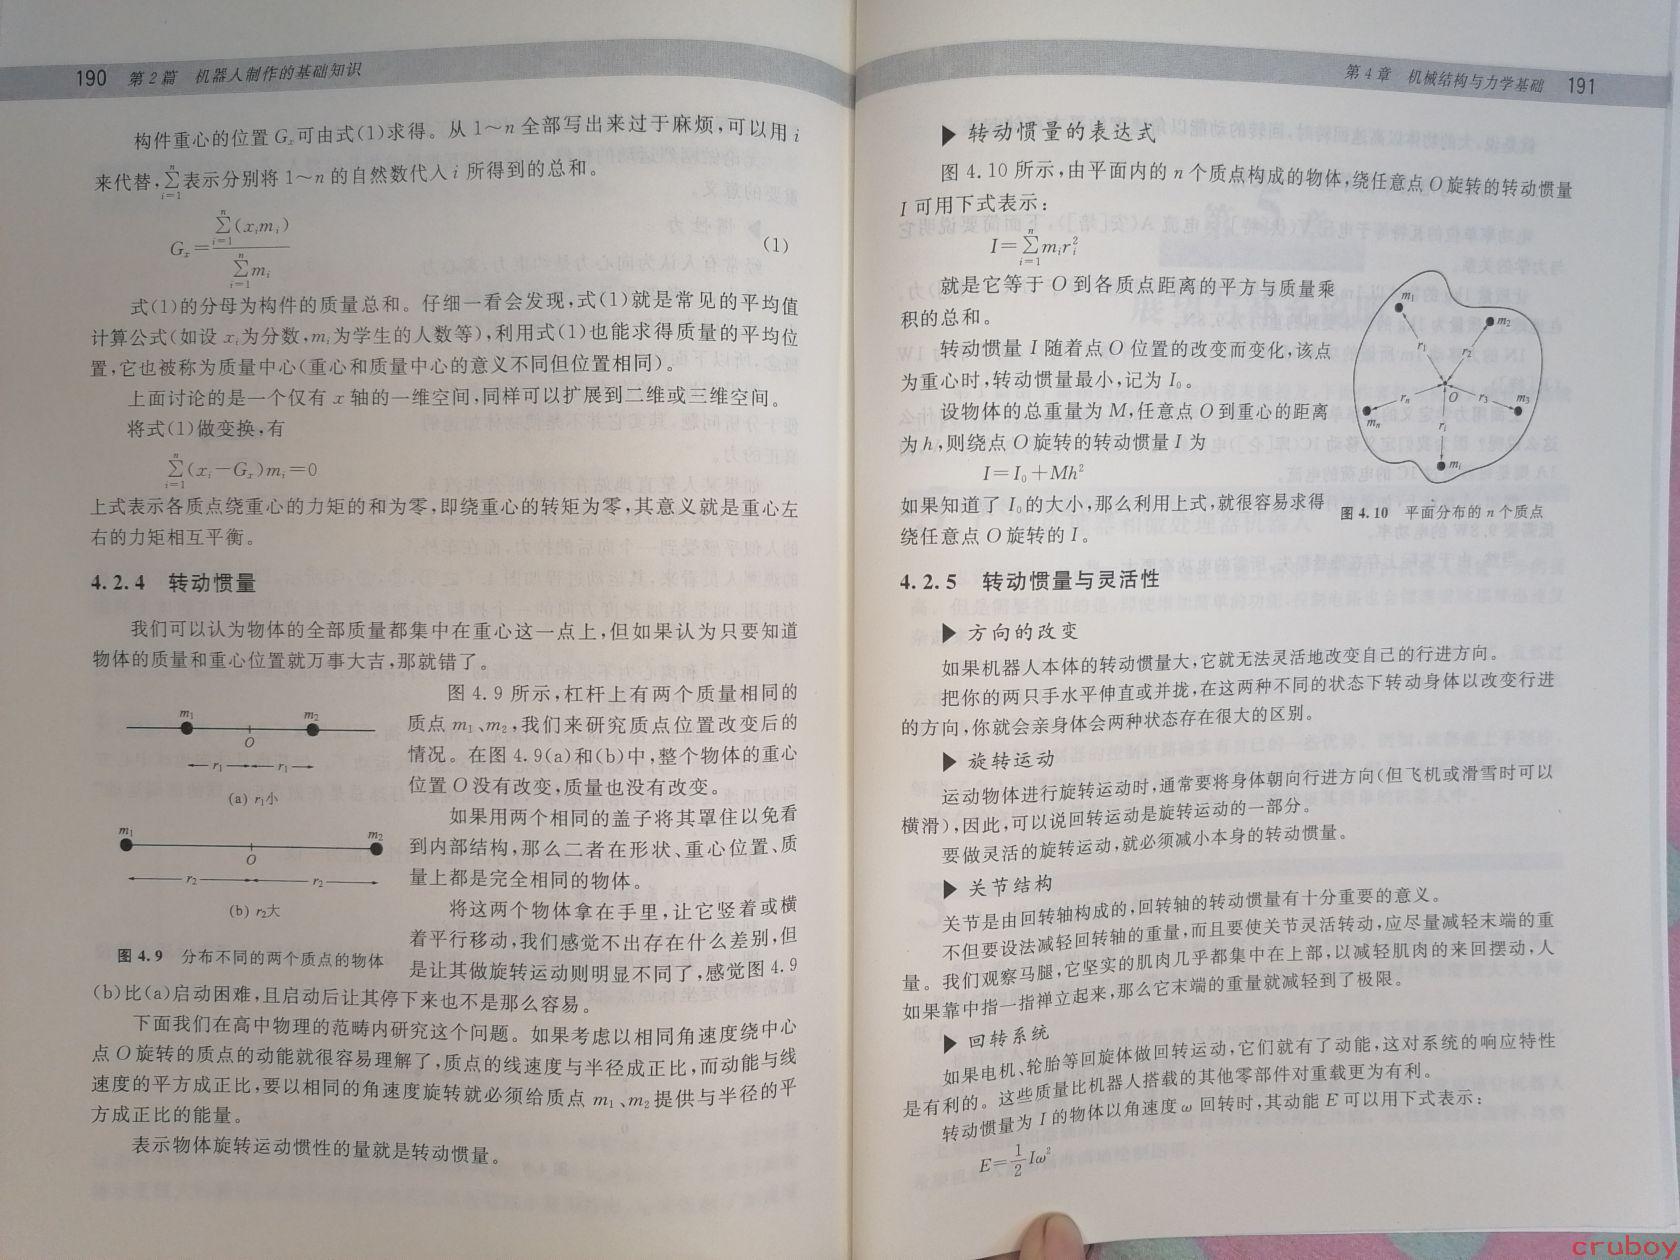 190 第2篇 机器人制作的基础知识
构件重心的位置 Gₓ可由式(1)求得。从 1～n 全部写出来过于麻烦,可以用 i
来代替,∑ⁿᵢ₌₁表示分别将 1～n 的自然数代入 i 所得到的总和。
Gₓ=∑ⁿᵢ₌₁(xᵢmᵢ)/∑ⁿᵢ₌₁mᵢ (1)
式(1)的分母为构件的质量总和。仔细一看会发现,式(1)就是常见的平均值
计算公式(如设 xᵢ为分数,mᵢ为学生的人数等),利用式(1)也能求得质量的平均位
置,它也被称为质量中心(重心和质量中心的意义不同但位置相同)。
上面讨论的是一个仅有 x 轴的一维空间,同样可以扩展到二维或三维空间。
将式(1)做变换,有
∑ⁿᵢ₌₁(xᵢ−Gₓ)mᵢ=0
上式表示各质点绕重心的力矩的和为零,即绕重心的转矩为零,其意义就是重心左
右的力矩相互平衡。
4.2.4 转动惯量
我们可以认为物体的全部质量都集中在重心这一点上,但如果认为只要知道
物体的质量和重心位置就万事大吉,那就错了。
图 4.9 所示,杠杆上有两个质量相同的
质点 m₁、m₂,我们来研究质点位置改变后的
情况。在图 4.9(a)和(b)中,整个物体的重心
位置 O 没有改变,质量也没有改变。
如果用两个相同的盖子将其罩住以免看
到内部结构,那么二者在形状、重心位置、质
量上都是完全相同的物体。
将这两个物体拿在手里,让它竖着或横
着平行移动,我们感觉不出存在什么差别,但
是让其做旋转运动则明显不同了,感觉图 4.9
m₁ m₂
O
r₁ r₁
(a) r₁小
m₁ m₂
O
r₂ r₂
(b) r₂大
图 4.9 分布不同的两个质点的物体
(b)比(a)启动困难,且启动后让其停下来也不是那么容易。
下面我们在高中物理的范畴内研究这个问题。如果考虑以相同角速度绕中心
点 O 旋转的质点的动能就很容易理解了,质点的线速度与半径成正比,而动能与线
速度的平方成正比,要以相同的角速度旋转就必须给质点 m₁、m₂提供与半径的平
方成正比的能量。
表示物体旋转运动惯性的量就是转动惯量。
第 4 章 机械结构与力学基础 191
▶ 转动惯量的表达式
图 4.10 所示,由平面内的 n 个质点构成的物体,绕任意点 O 旋转的转动惯量
I 可用下式表示:
I=∑ⁿᵢ₌₁mᵢrᵢ²
就是它等于 O 到各质点距离的平方与质量乘
积的总和。
转动惯量 I 随着点 O 位置的改变而变化,该点
为重心时,转动惯量最小,记为 I₀。
设物体的总重量为 M,任意点 O 到重心的距离
为 h,则绕点 O 旋转的转动惯量 I 为
I=I₀+Mh²
如果知道了 I₀的大小,那么利用上式,就很容易求得
绕任意点 O 旋转的 I。
m₁
m₂
r₁ r₂
O
rₙ r₃ m₃
mₙ
rᵢ
mᵢ
图 4.10 平面分布的 n 个质点
4.2.5 转动惯量与灵活性
▶ 方向的改变
如果机器人本体的转动惯量大,它就无法灵活地改变自己的行进方向。
把你的两只手水平伸直或并拢,在这两种不同的状态下转动身体以改变行进
的方向,你就会亲身体会两种状态存在很大的区别。
▶ 旋转运动
运动物体进行旋转运动时,通常要将身体朝向行进方向(但飞机或滑雪时可以
横滑),因此,可以说回转运动是旋转运动的一部分。
要做灵活的旋转运动,就必须减小本身的转动惯量。
▶ 关节结构
关节是由回转轴构成的,回转轴的转动惯量有十分重要的意义。
不但要设法减轻回转轴的重量,而且要使关节灵活转动,应尽量减轻末端的重
量。我们观察马腿,它坚实的肌肉几乎都集中在上部,以减轻肌肉的来回摆动,人
如果靠中指一指禅立起来,那么它末端的重量就减轻到了极限。
▶ 回转系统
如果电机、轮胎等回旋体做回转运动,它们就有了动能,这对系统的响应特性
是有利的。这些质量比机器人搭载的其他零部件对重载更为有利。
转动惯量为 I 的物体以角速度 ω 回转时,其动能 E 可以用下式表示:
E=½Iω²
cruboy